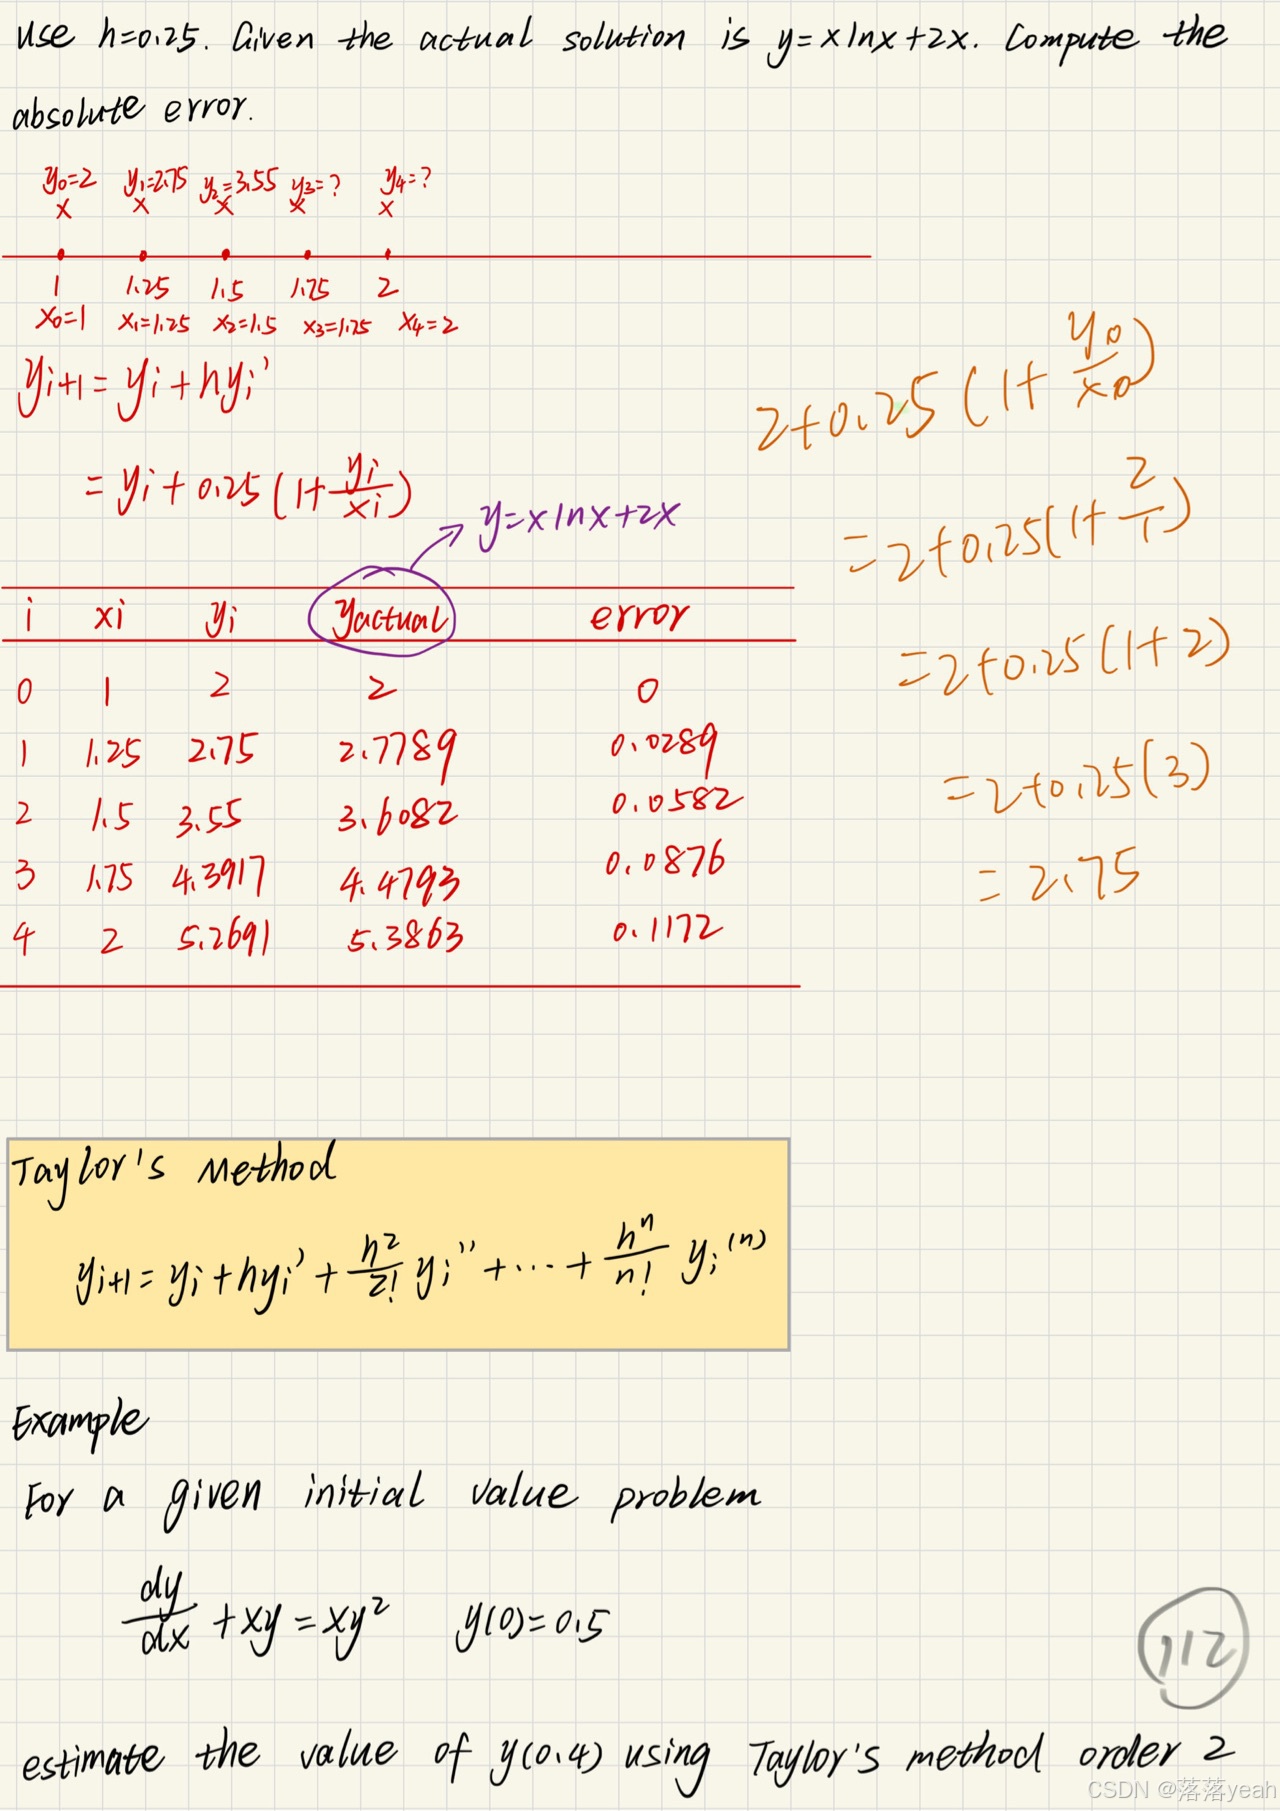 use h=0.25. Given the actual solution is y=xlnx+2x. Compute the
absolute error.
y₀=2 y₁=2.75 y₂=3.55 y₃=? y₄=?
x x x x x
1 1.25 1.5 1.75 2
x₀=1 x₁=1.25 x₂=1.5 x₃=1.75 x₄=2
yᵢ₊₁=yᵢ+hyᵢ'
=yᵢ+0.25(1+yᵢ/xᵢ)
y=xlnx+2x
i xi yᵢ yactual error
0 1 2 2 0
1 1.25 2.75 2.7789 0.0289
2 1.5 3.55 3.6082 0.0582
3 1.75 4.3917 4.4793 0.0876
4 2 5.2691 5.3863 0.1172
2+0.25(1+y₀/x₀)
=2+0.25(1+2/1)
=2+0.25(1+2)
=2+0.25(3)
=2.75
Taylor's Method
yᵢ₊₁=yᵢ+hyᵢ'+h²/2! yᵢ''+...+hⁿ/n! yᵢ⁽ⁿ⁾
Example
For a given initial value problem
dy/dx+xy=xy² y(0)=0.5
112
estimate the value of y(0.4) using Taylor's method order 2
CSDN @落落yeah